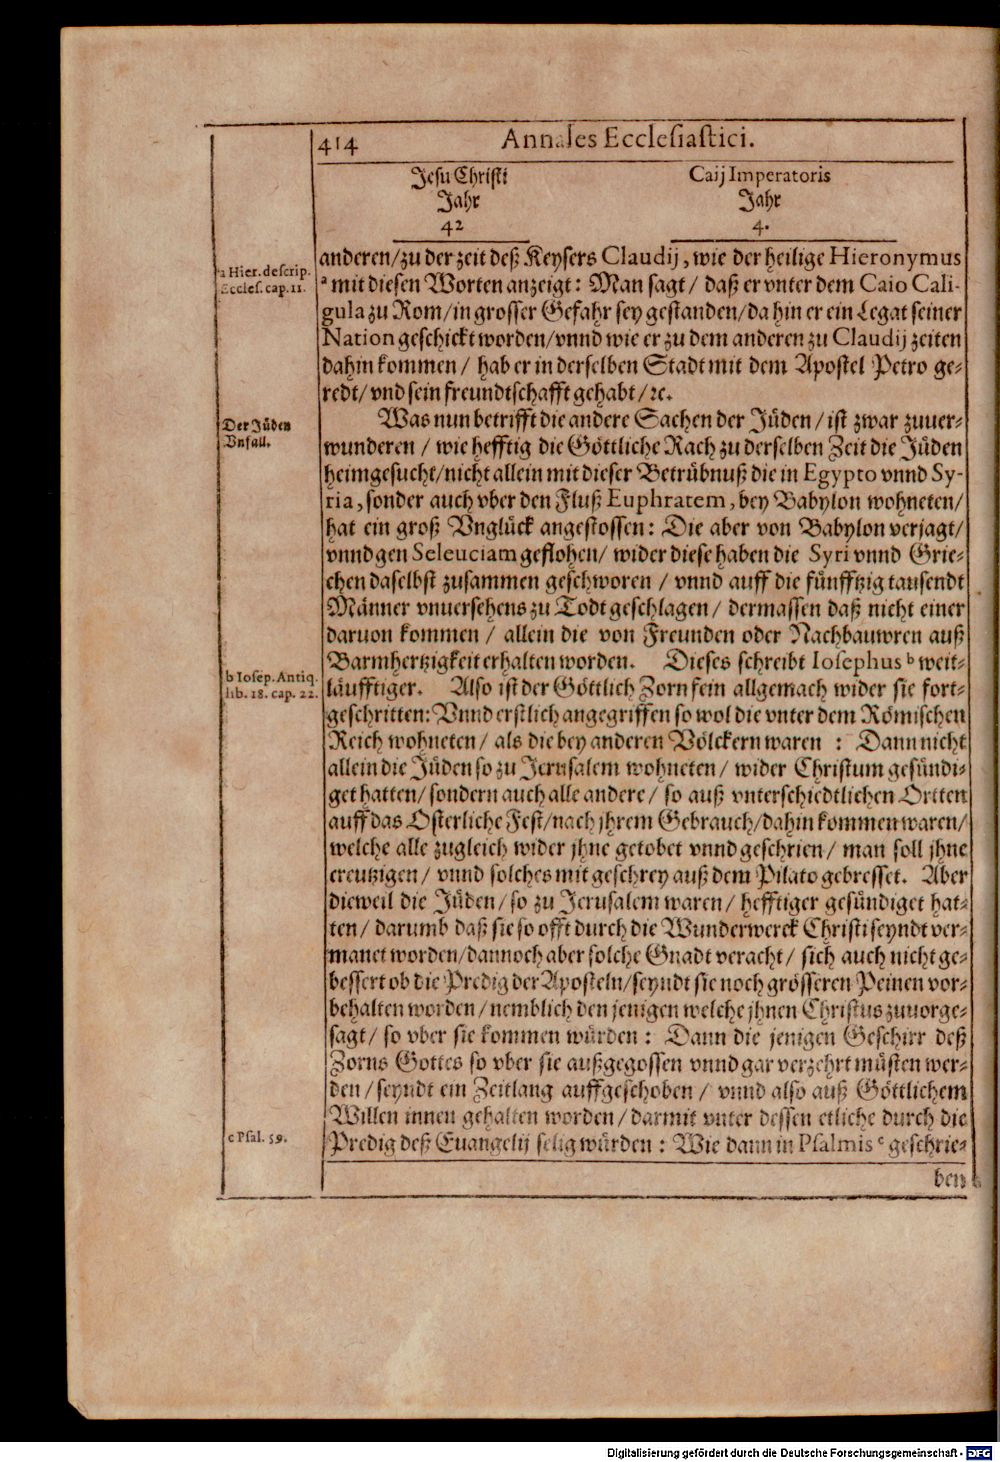 414
Annales Ecclesiastici.
Jesu Christi
Jahr
42
Caij Imperatoris
Jahr
4.
anderen/zu der zeit deß Keysers Claudij, wie der heilige Hieronymus
a Hier. descrip.
Eccles. cap. 11.
ᵃ mit diesen Worten anzeigt: Man sagt/ daß er vnter dem Caio Cali-
gula zu Rom/in grosser Gefahr sey gestanden/da hin er ein Legat seiner
Nation geschickt worden/vnnd wie er zu dem anderen zu Claudij zeiten
dahin kommen/ hab er in derselben Stadt mit dem Apostel Petro ge-
redt/ vnd sein freundtschafft gehabt/ ꝛc.
Der Jüden
Vnfall.
Was nun betrifft die andere Sachen der Jüden/ ist zwar zuuer-
wunderen / wie hefftig die Göttliche Rach zu derselben Zeit die Jüden
heimgesucht/nicht allein mit dieser Betrübnuß die in Egypto vnnd Sy-
ria, sonder auch vber den Fluß Euphratem, bey Babylon wohneten/
hat ein groß Vnglück angestossen: Die aber von Babylon verjagt/
vnnd gen Seleuciam geflohen/ wider diese haben die Syri vnnd Grie-
chen daselbst zusammen geschworen / vnnd auff die fünfftzig tausendt
Männer vnuersehens zu Todt geschlagen/ dermassen daß nicht einer
daruon kommen / allein die von Freunden oder Nachbauwren auß
Barmhertzigkeit erhalten worden. Dieses schreibt Iosephus ᵇ weit-
b Iosep. Antiq.
lib. 18. cap. 22.
läufftiger. Also ist der Göttlich Zorn fein allgemach wider sie fort-
geschritten: Vnnd erstlich angegriffen so wol die vnter dem Römischen
Reich wohneten/ als die bey anderen Völckern waren : Dann nicht
allein die Jüden so zu Jerusalem wohneten/ wider Christum gesündi-
get hatten/ sondern auch alle andere/ so auß vnterschiedtlichen Ortten
auff das Osterliche Fest/nach jhrem Gebrauch/dahin kommen waren/
welche alle zugleich wider jhne getobet vnnd geschrien/ man soll jhne
creutzigen/ vnnd solches mit geschrey auß dem Pilato gebresset. Aber
dieweil die Jüden/ so zu Jerusalem waren/ hefftiger gesündiget hat-
ten/ darumb daß sie so offt durch die Wunderwerck Christi seyndt ver-
manet worden/dannoch aber solche Gnadt veracht/ sich auch nicht ge-
bessert ob die Predig der Aposteln/seyndt sie noch grösseren Peinen vor-
behalten worden/nemblich den jenigen welche jhnen Christus zuuorge-
sagt/ so vber sie kommen würden: Dann die jenigen Geschirr deß
Zorns Gottes so vber sie außgegossen vnnd gar verzehrt müsten wer-
den/seyndt ein Zeitlang auffgeschoben / vnnd also auß Göttlichem
Willen innen gehalten worden/darmit vnter dessen etliche durch die
c Psal. 59.
Predig deß Euangelij selig würden: Wie dann in Psalmis ᶜ geschrie-
ben
Digitalisierung gefördert durch die Deutsche Forschungsgemeinschaft - DFG